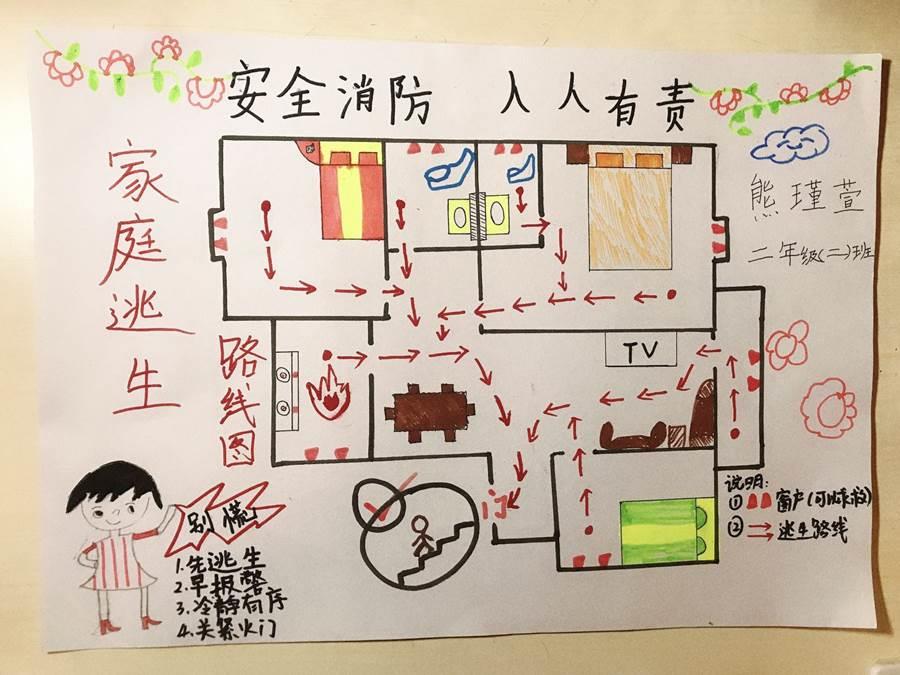 安全消防 人人有责
家庭逃生
路线图
熊瑾萱
二年级(二)班
TV
门
说明:
① 窗户(可以求救)
② 逃生路线
别慌
1.先逃生
2.早报警
3.冷静有序
4.关紧火门